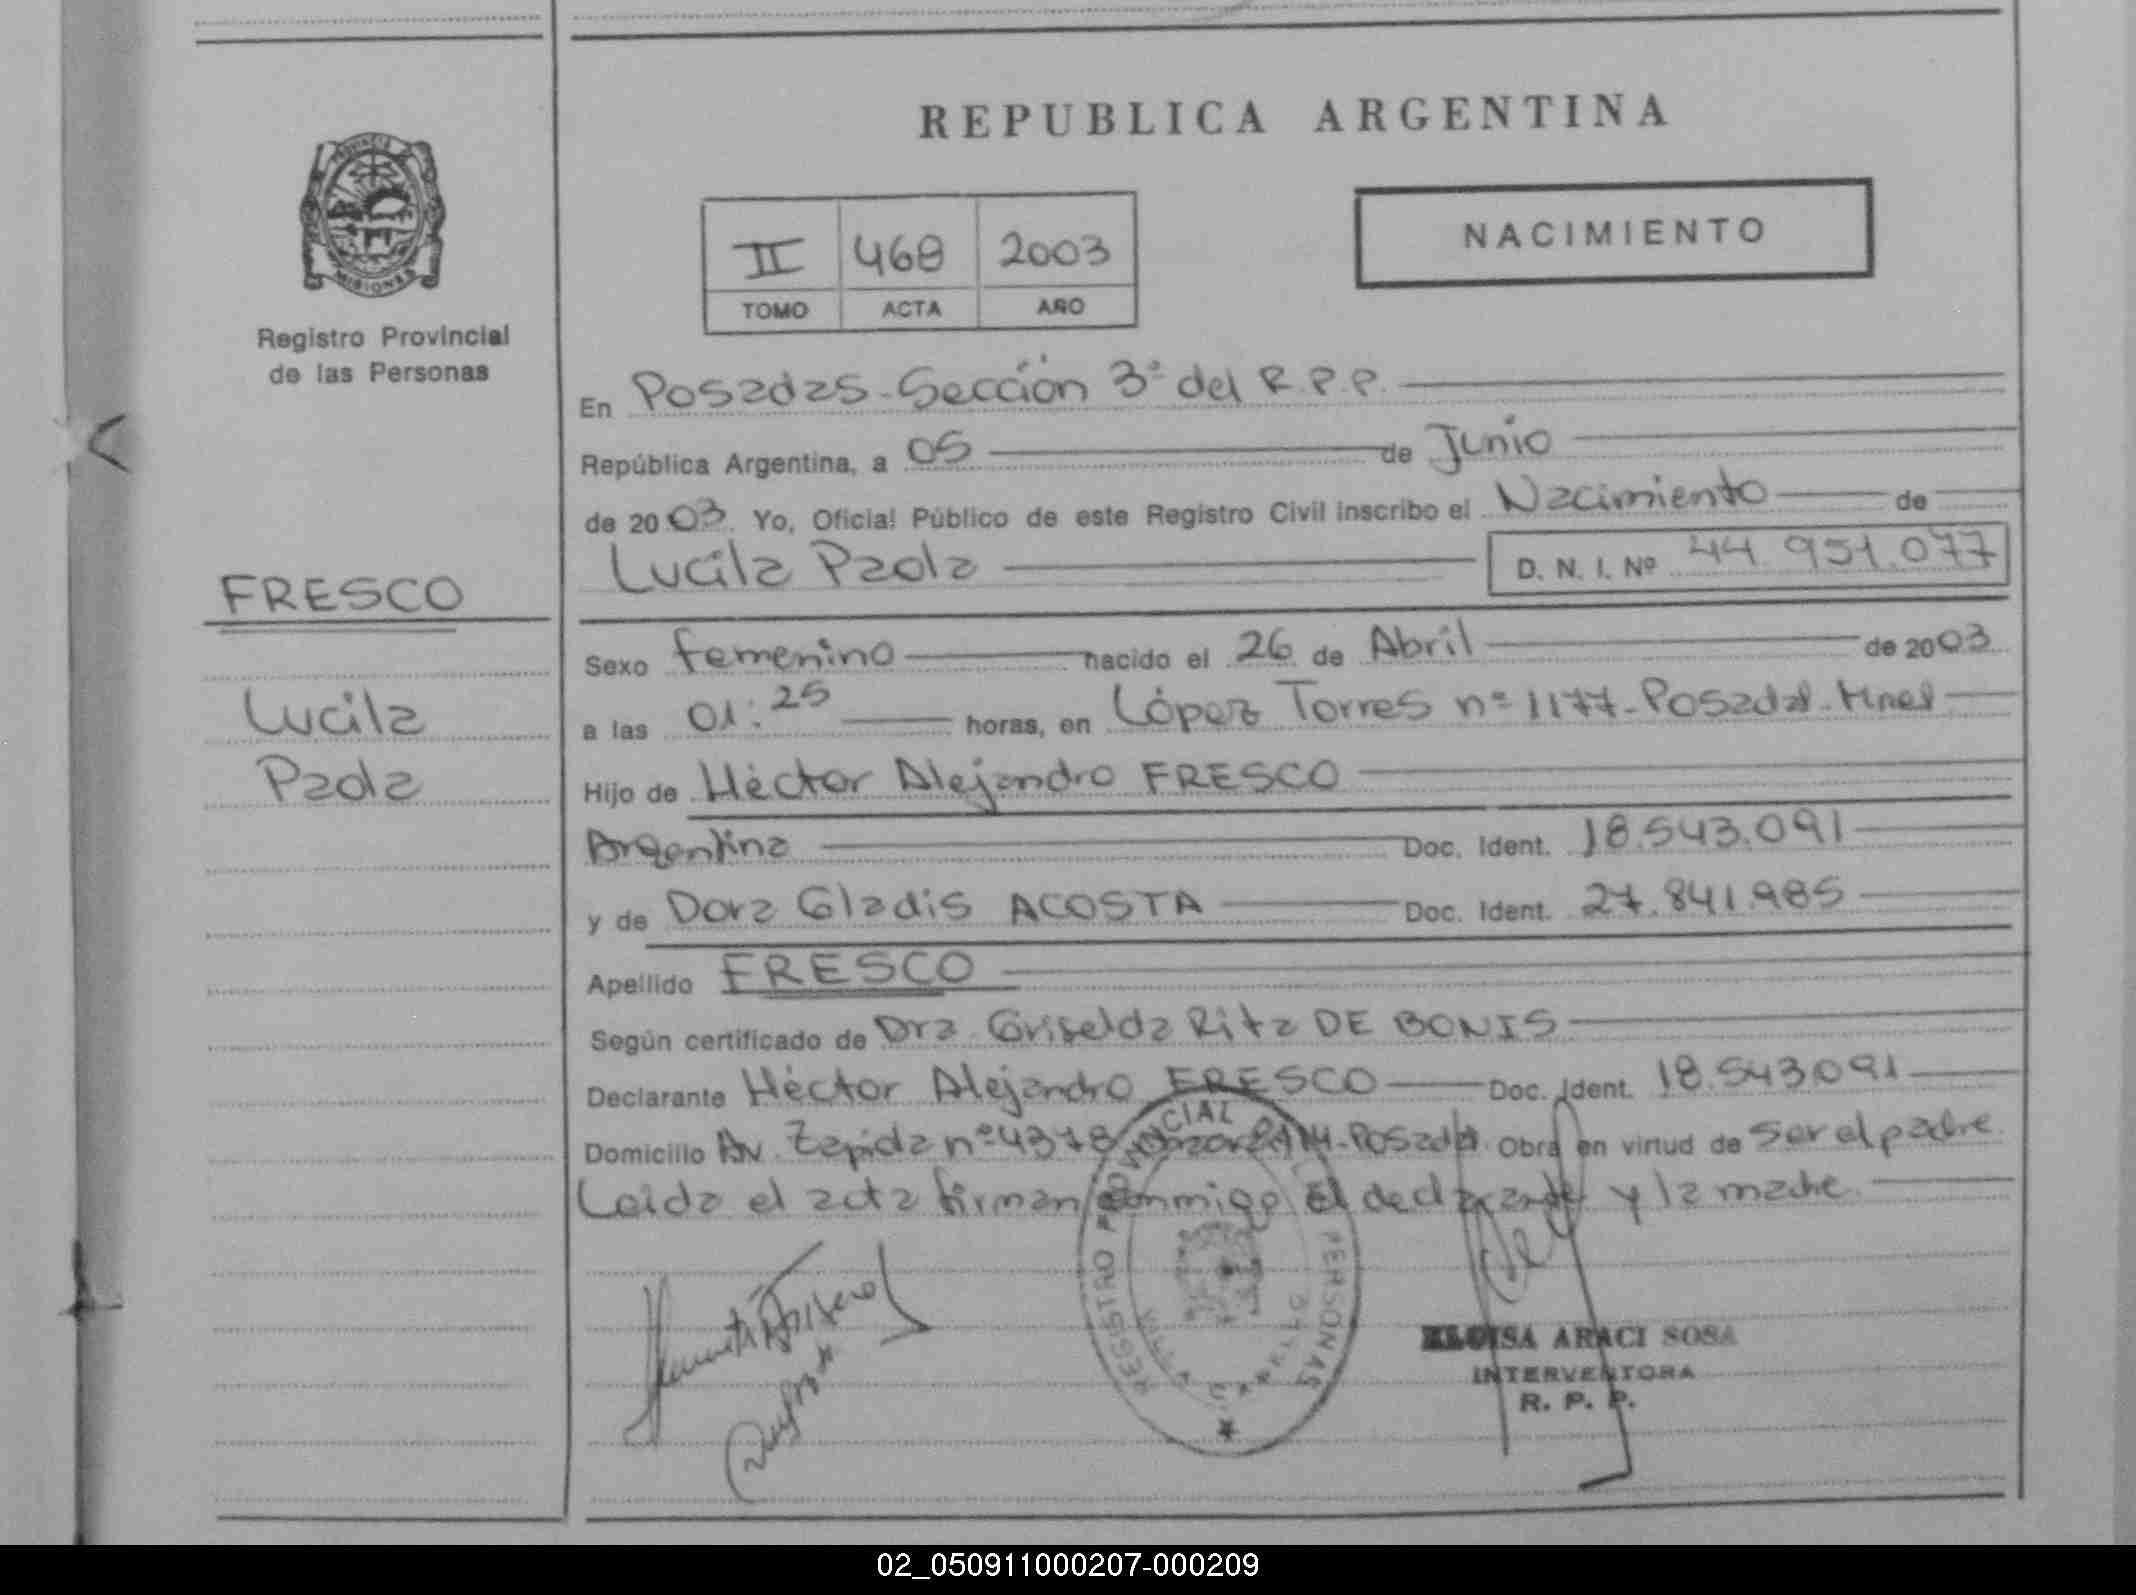 REPUBLICA ARGENTINA
NACIMIENTO
II 468 2003
TOMO ACTA AÑO
PROVINCIA
MISIONES
Registro Provincial
de las Personas
En Posadas - Sección 3ª del R.P.P.
República Argentina, a 05 de Junio
de 2003. Yo, Oficial Público de este Registro Civil inscribo el Nacimiento de
Lucila Paola D. N. I. Nº 44.951.077
FRESCO
Lucila
Paola
Sexo femenino nacido el 26 de Abril de 2003
a las 01:25 horas, en López Torres nº 1177 - Posadas - Mnes
Hijo de Héctor Alejandro FRESCO
Argentina Doc. Ident. 18.543.091
y de Dora Gladis ACOSTA Doc. Ident. 27.841.985
Apellido FRESCO
Según certificado de Dra. Griselda Rita DE BONIS
Declarante Héctor Alejandro FRESCO Doc. Ident. 18.543.091
Domicilio Av. Zapiola nº 4378 - Posadas. Obra en virtud de ser el padre.
Leída el acta firman conmigo el declarante y la madre.
REGISTRO PROVINCIAL PERSONAS
ELOISA ARACI SOSA
INTERVENTORA
R. P. P.
02_050911000207-000209